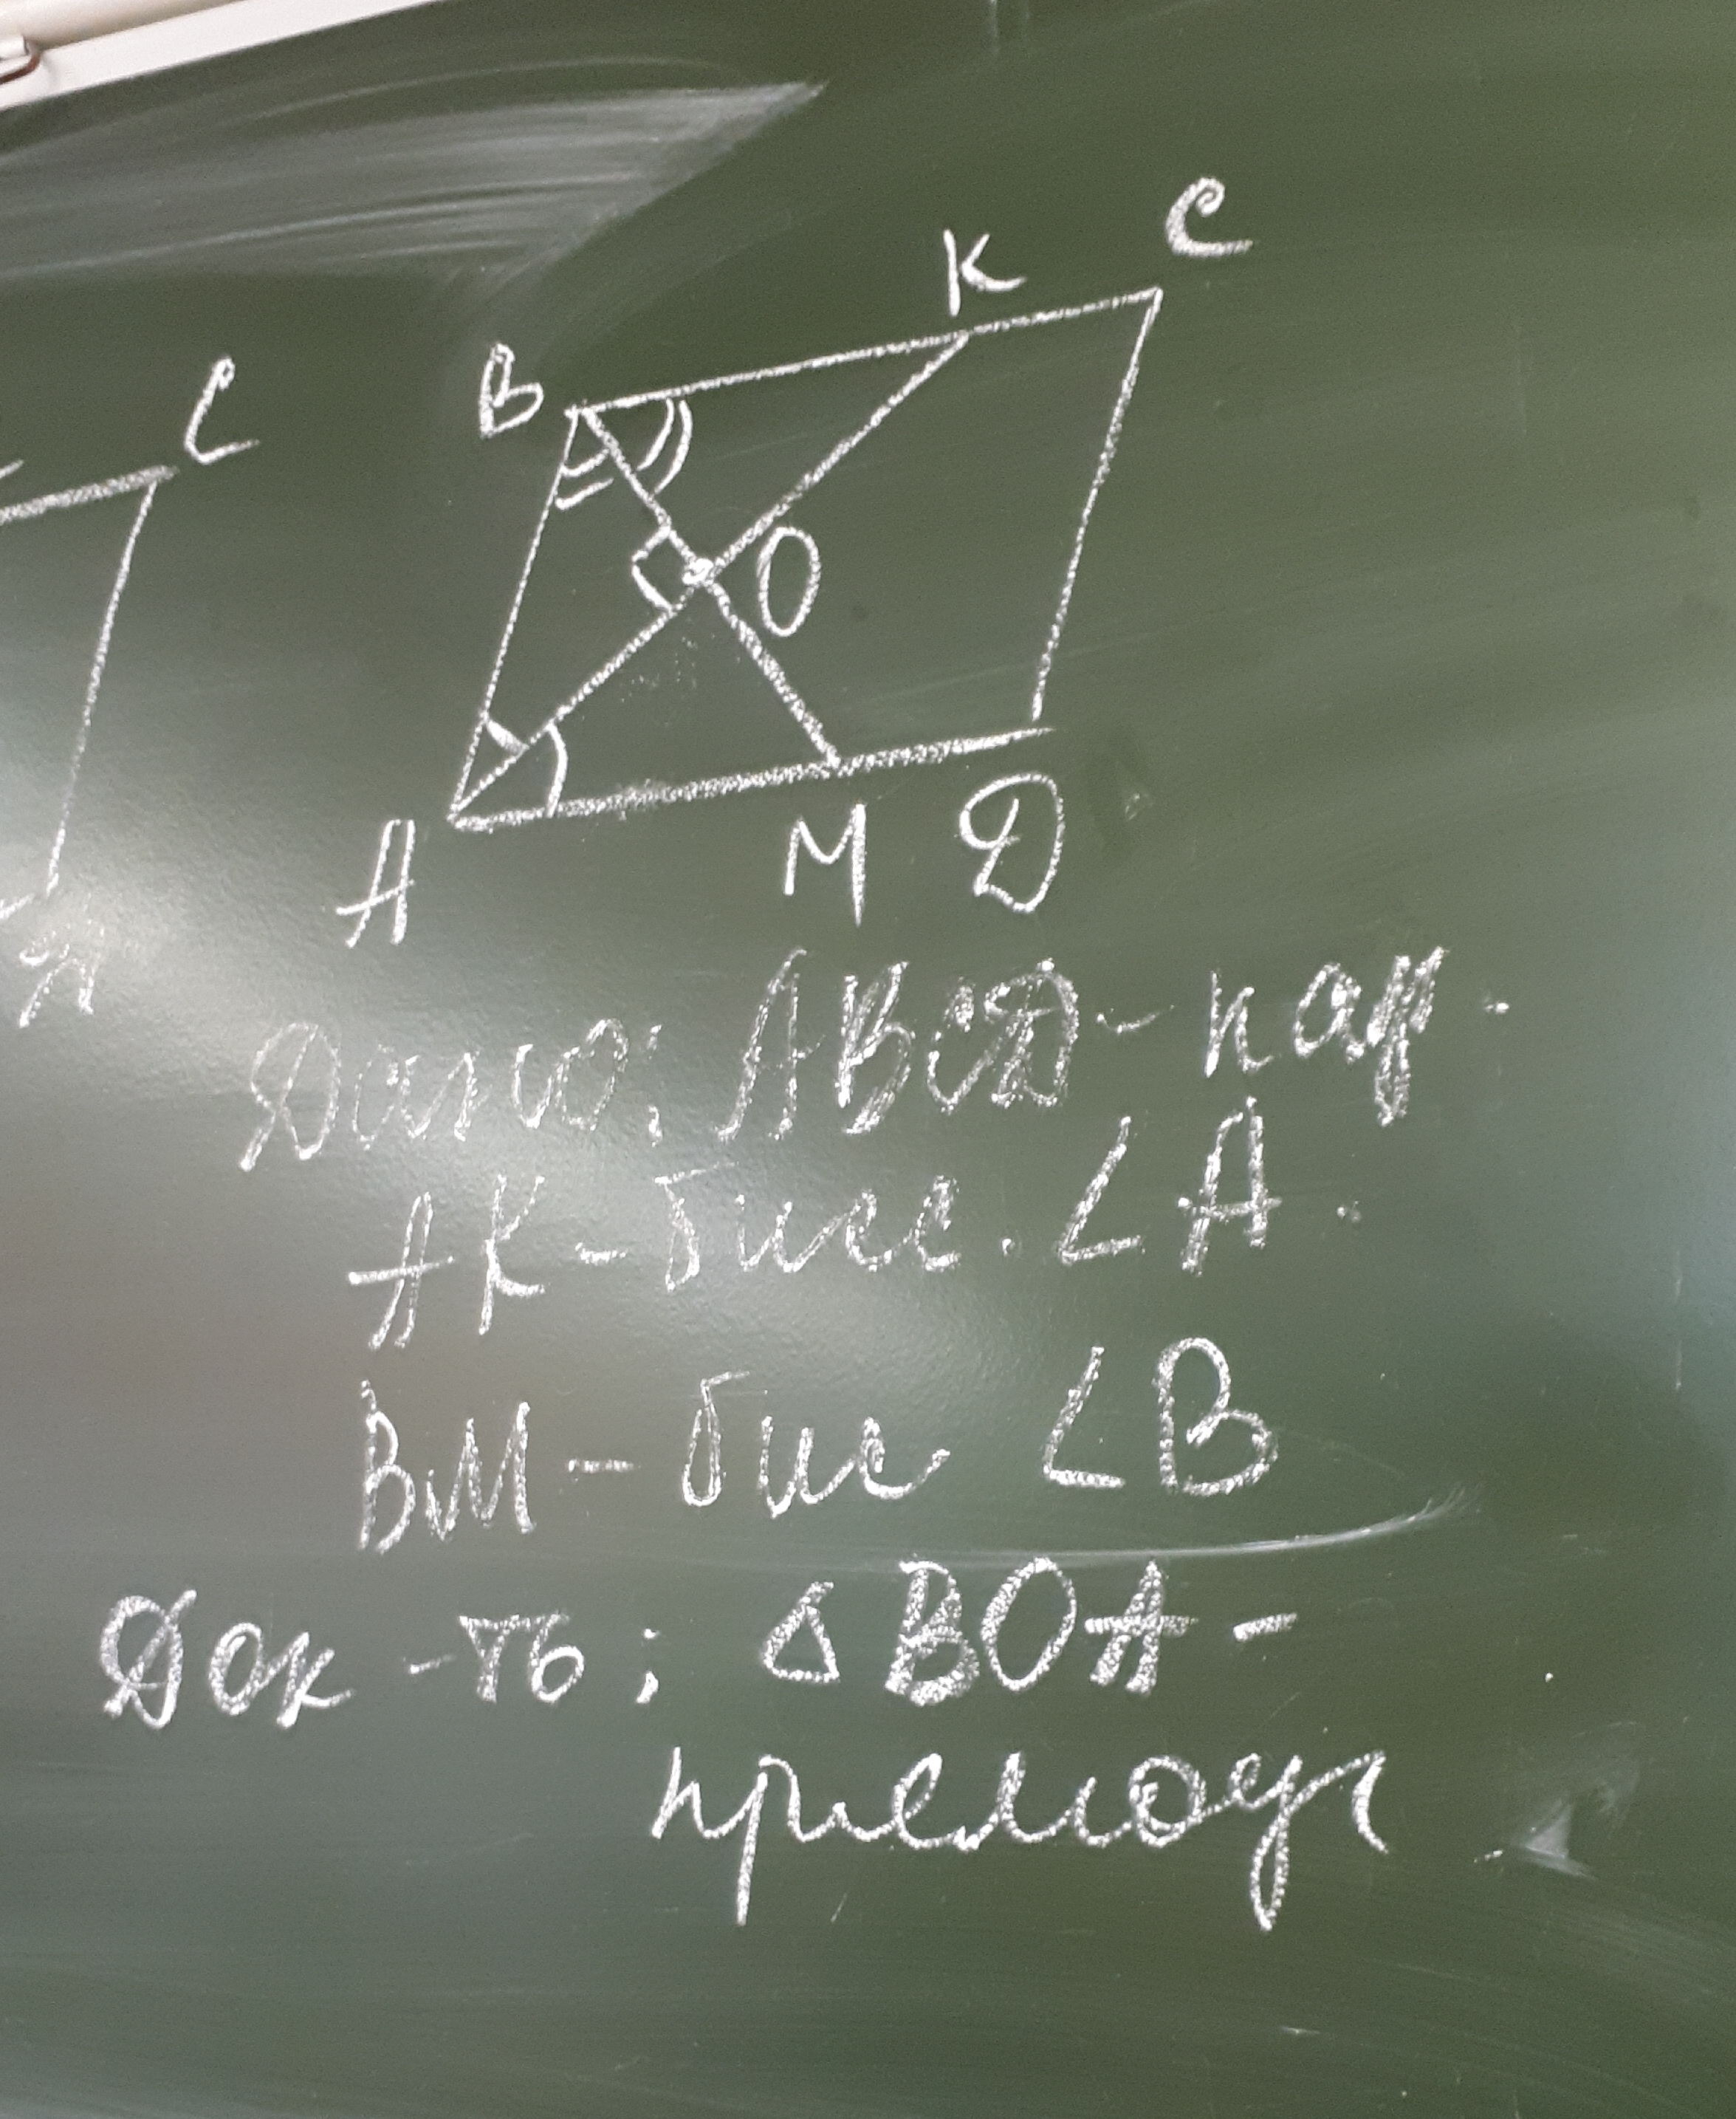 C
K C
B
O
A M D
Дано: ABCD - пар.
AK - бисс. ∠A.
BM - бис ∠B
Док-ть: △BOA -
прямоуг